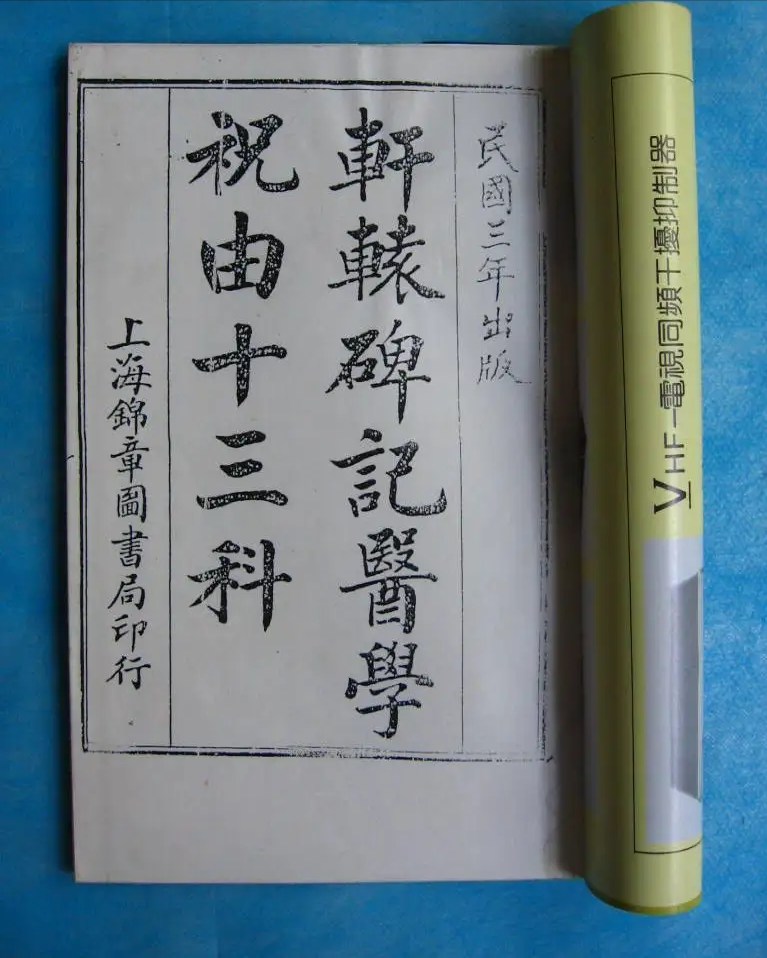 民國三年出版
軒轅碑記醫學
祝由十三科
上海錦章圖書局印行
VHF一電視同頻干擾抑制器